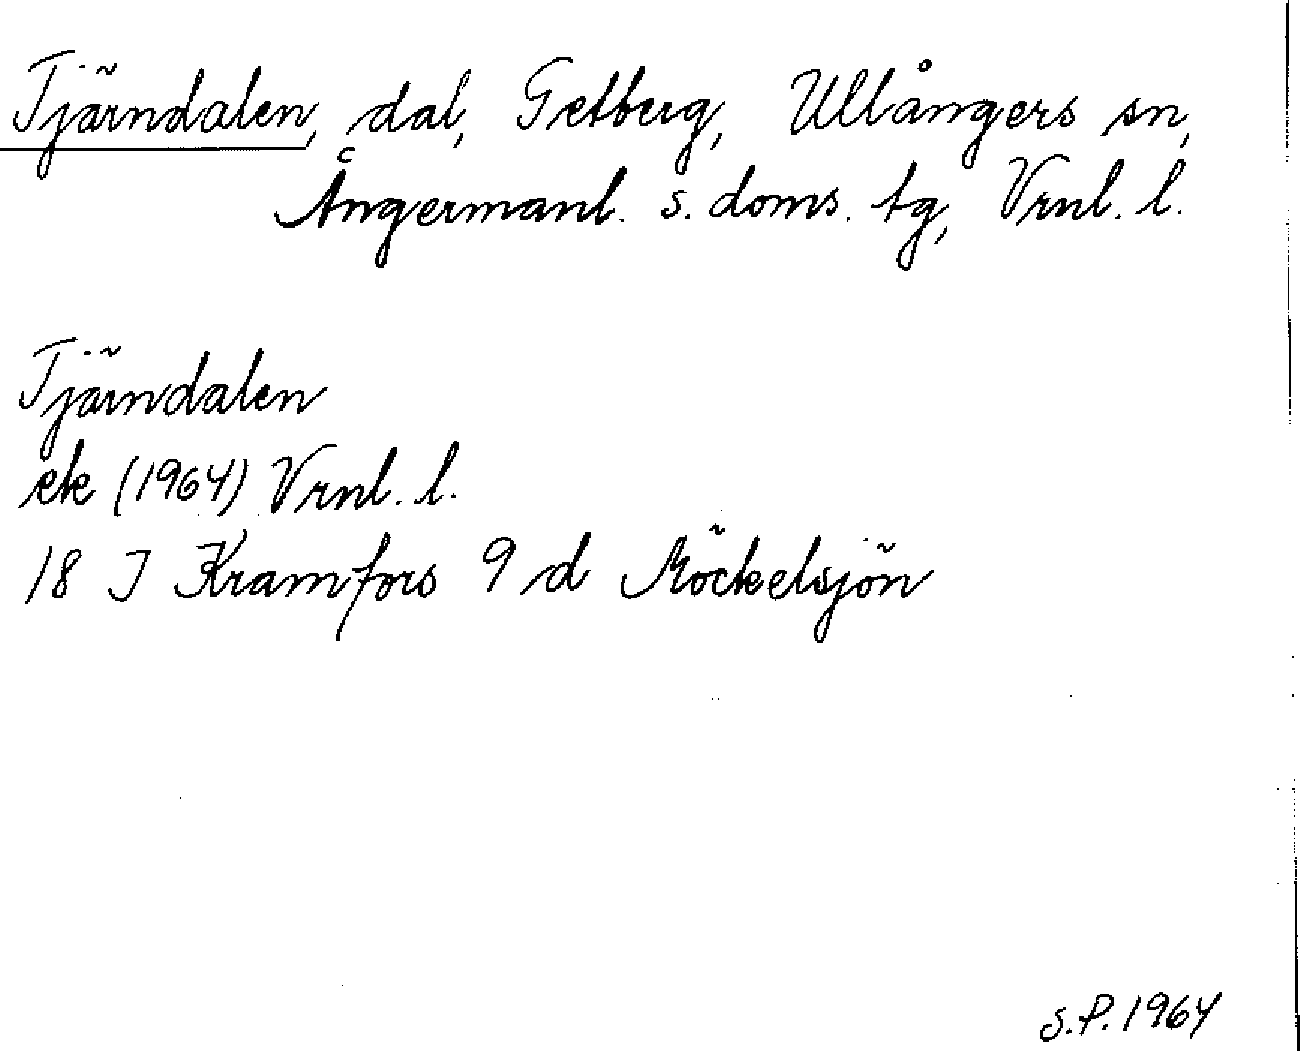 Tjärndalen, dal, Getberg, Ullångers sn,
Ångermanl. s. doms. tg, Vrnl. l.
Tjärndalen
ek (1964) Vrnl. l.
18 I Kramfors 9 d Möckelsjön
S.P. 1964